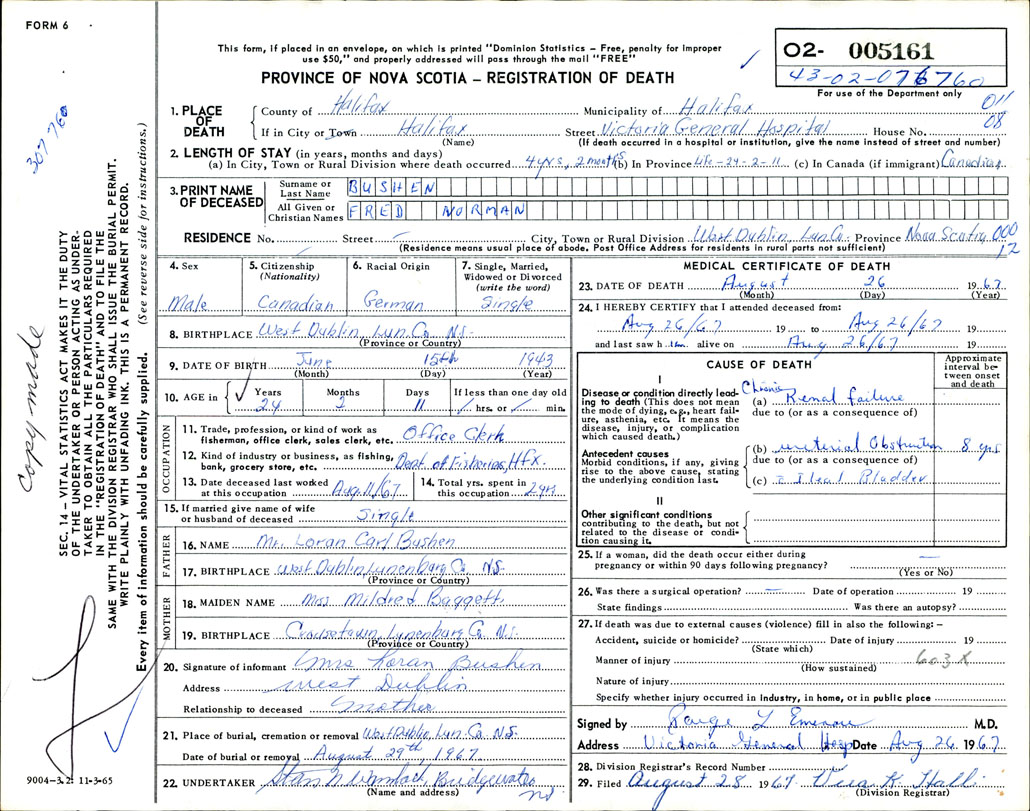 FORM 6
This form, if placed in an envelope, on which is printed "Dominion Statistics – Free, penalty for improper
use $50," and properly addressed will pass through the mail "FREE"
PROVINCE OF NOVA SCOTIA – REGISTRATION OF DEATH
02- 005161
43-02-076760
For use of the Department only
011
08
307 760
Copy made
SEC. 14 – VITAL STATISTICS ACT MAKES IT THE DUTY
OF THE UNDERTAKER OR PERSON ACTING AS UNDER-
TAKER TO OBTAIN ALL THE PARTICULARS REQUIRED
IN THE "REGISTRATION OF DEATH" AND TO FILE THE
SAME WITH THE DIVISION REGISTRAR WHO SHALL ISSUE THE BURIAL PERMIT.
WRITE PLAINLY WITH UNFADING INK. THIS IS A PERMANENT RECORD.
Every item of information should be carefully supplied. (See reverse side for instructions.)
1. PLACE OF DEATH
County of Halifax Municipality of Halifax
If in City or Town Halifax Street Victoria General Hospital House No.
(Name) (If death occurred in a hospital or institution, give the name instead of street and number)
2. LENGTH OF STAY (in years, months and days)
(a) In City, Town or Rural Division where death occurred 4 yrs, 2 months (b) In Province Life-24-2-11 (c) In Canada (if immigrant) Canadian
3. PRINT NAME OF DECEASED
Surname or Last Name BUSHEN
All Given or Christian Names FRED NORMAN
RESIDENCE No. Street – City, Town or Rural Division West Dublin, Lun Co. Province Nova Scotia 000
(Residence means usual place of abode. Post Office Address for residents in rural parts not sufficient) 12
4. Sex
Male
5. Citizenship
(Nationality)
Canadian
6. Racial Origin
German
7. Single, Married,
Widowed or Divorced
(write the word)
Single
8. BIRTHPLACE West Dublin, Lun. Co. N.S.
(Province or Country)
9. DATE OF BIRTH June 15th 1943
(Month) (Day) (Year)
10. AGE in ✓ Years Months Days If less than one day old
24 2 11 / hrs. or / min.
OCCUPATION
11. Trade, profession, or kind of work as
fisherman, office clerk, sales clerk, etc. Office Clerk
12. Kind of industry or business, as fishing,
bank, grocery store, etc. Dept. of Fisheries, Hfx.
13. Date deceased last worked
at this occupation Aug 11/67
14. Total yrs. spent in
this occupation 2 yrs
15. If married give name of wife
or husband of deceased Single
FATHER
16. NAME Mr. Loran Carl Bushen
17. BIRTHPLACE West Dublin Lunenburg Co. N.S.
(Province or Country)
MOTHER
18. MAIDEN NAME Miss Mildred Baggett
19. BIRTHPLACE Crousetown, Lunenburg Co. N.S.
(Province or Country)
20. Signature of informant Mrs Loran Bushen
Address West Dublin
Relationship to deceased Mother
21. Place of burial, cremation or removal West Dublin, Lun. Co. N.S.
Date of burial or removal August 29th 1967
22. UNDERTAKER Bridgewater
(Name and address) NS
9004-3.2: 11-3-65
MEDICAL CERTIFICATE OF DEATH
23. DATE OF DEATH August 26 1967
(Month) (Day) (Year)
24. I HEREBY CERTIFY that I attended deceased from:
Aug 26/67 19 to Aug 26/67 19
and last saw him alive on Aug 26/67 19
CAUSE OF DEATH
Approximate
interval be-
tween onset
and death
I
Disease or condition directly lead-
ing to death (This does not mean
the mode of dying, e.g., heart fail-
ure, asthenia, etc. It means the
disease, injury, or complication
which caused death.)
Chronic
(a) Renal failure
due to (or as a consequence of)
Antecedent causes
Morbid conditions, if any, giving
rise to the above cause, stating
the underlying condition last.
(b) ureterial Obstruction 8 yrs
due to (or as a consequence of)
(c) Ileal Bladder
II
Other significant conditions
contributing to the death, but not
related to the disease or condi-
tion causing it.
25. If a woman, did the death occur either during
pregnancy or within 90 days following pregnancy? –
(Yes or No)
26. Was there a surgical operation? – Date of operation 19
State findings Was there an autopsy?
27. If death was due to external causes (violence) fill in also the following: –
Accident, suicide or homicide? Date of injury 19
(State which)
Manner of injury 603 X
(How sustained)
Nature of injury
Specify whether injury occurred in industry, in home, or in public place
Signed by L M.D.
Address Victoria General Hosp Date Aug 26 1967
28. Division Registrar's Record Number
29. Filed August 28 1967
(Division Registrar)